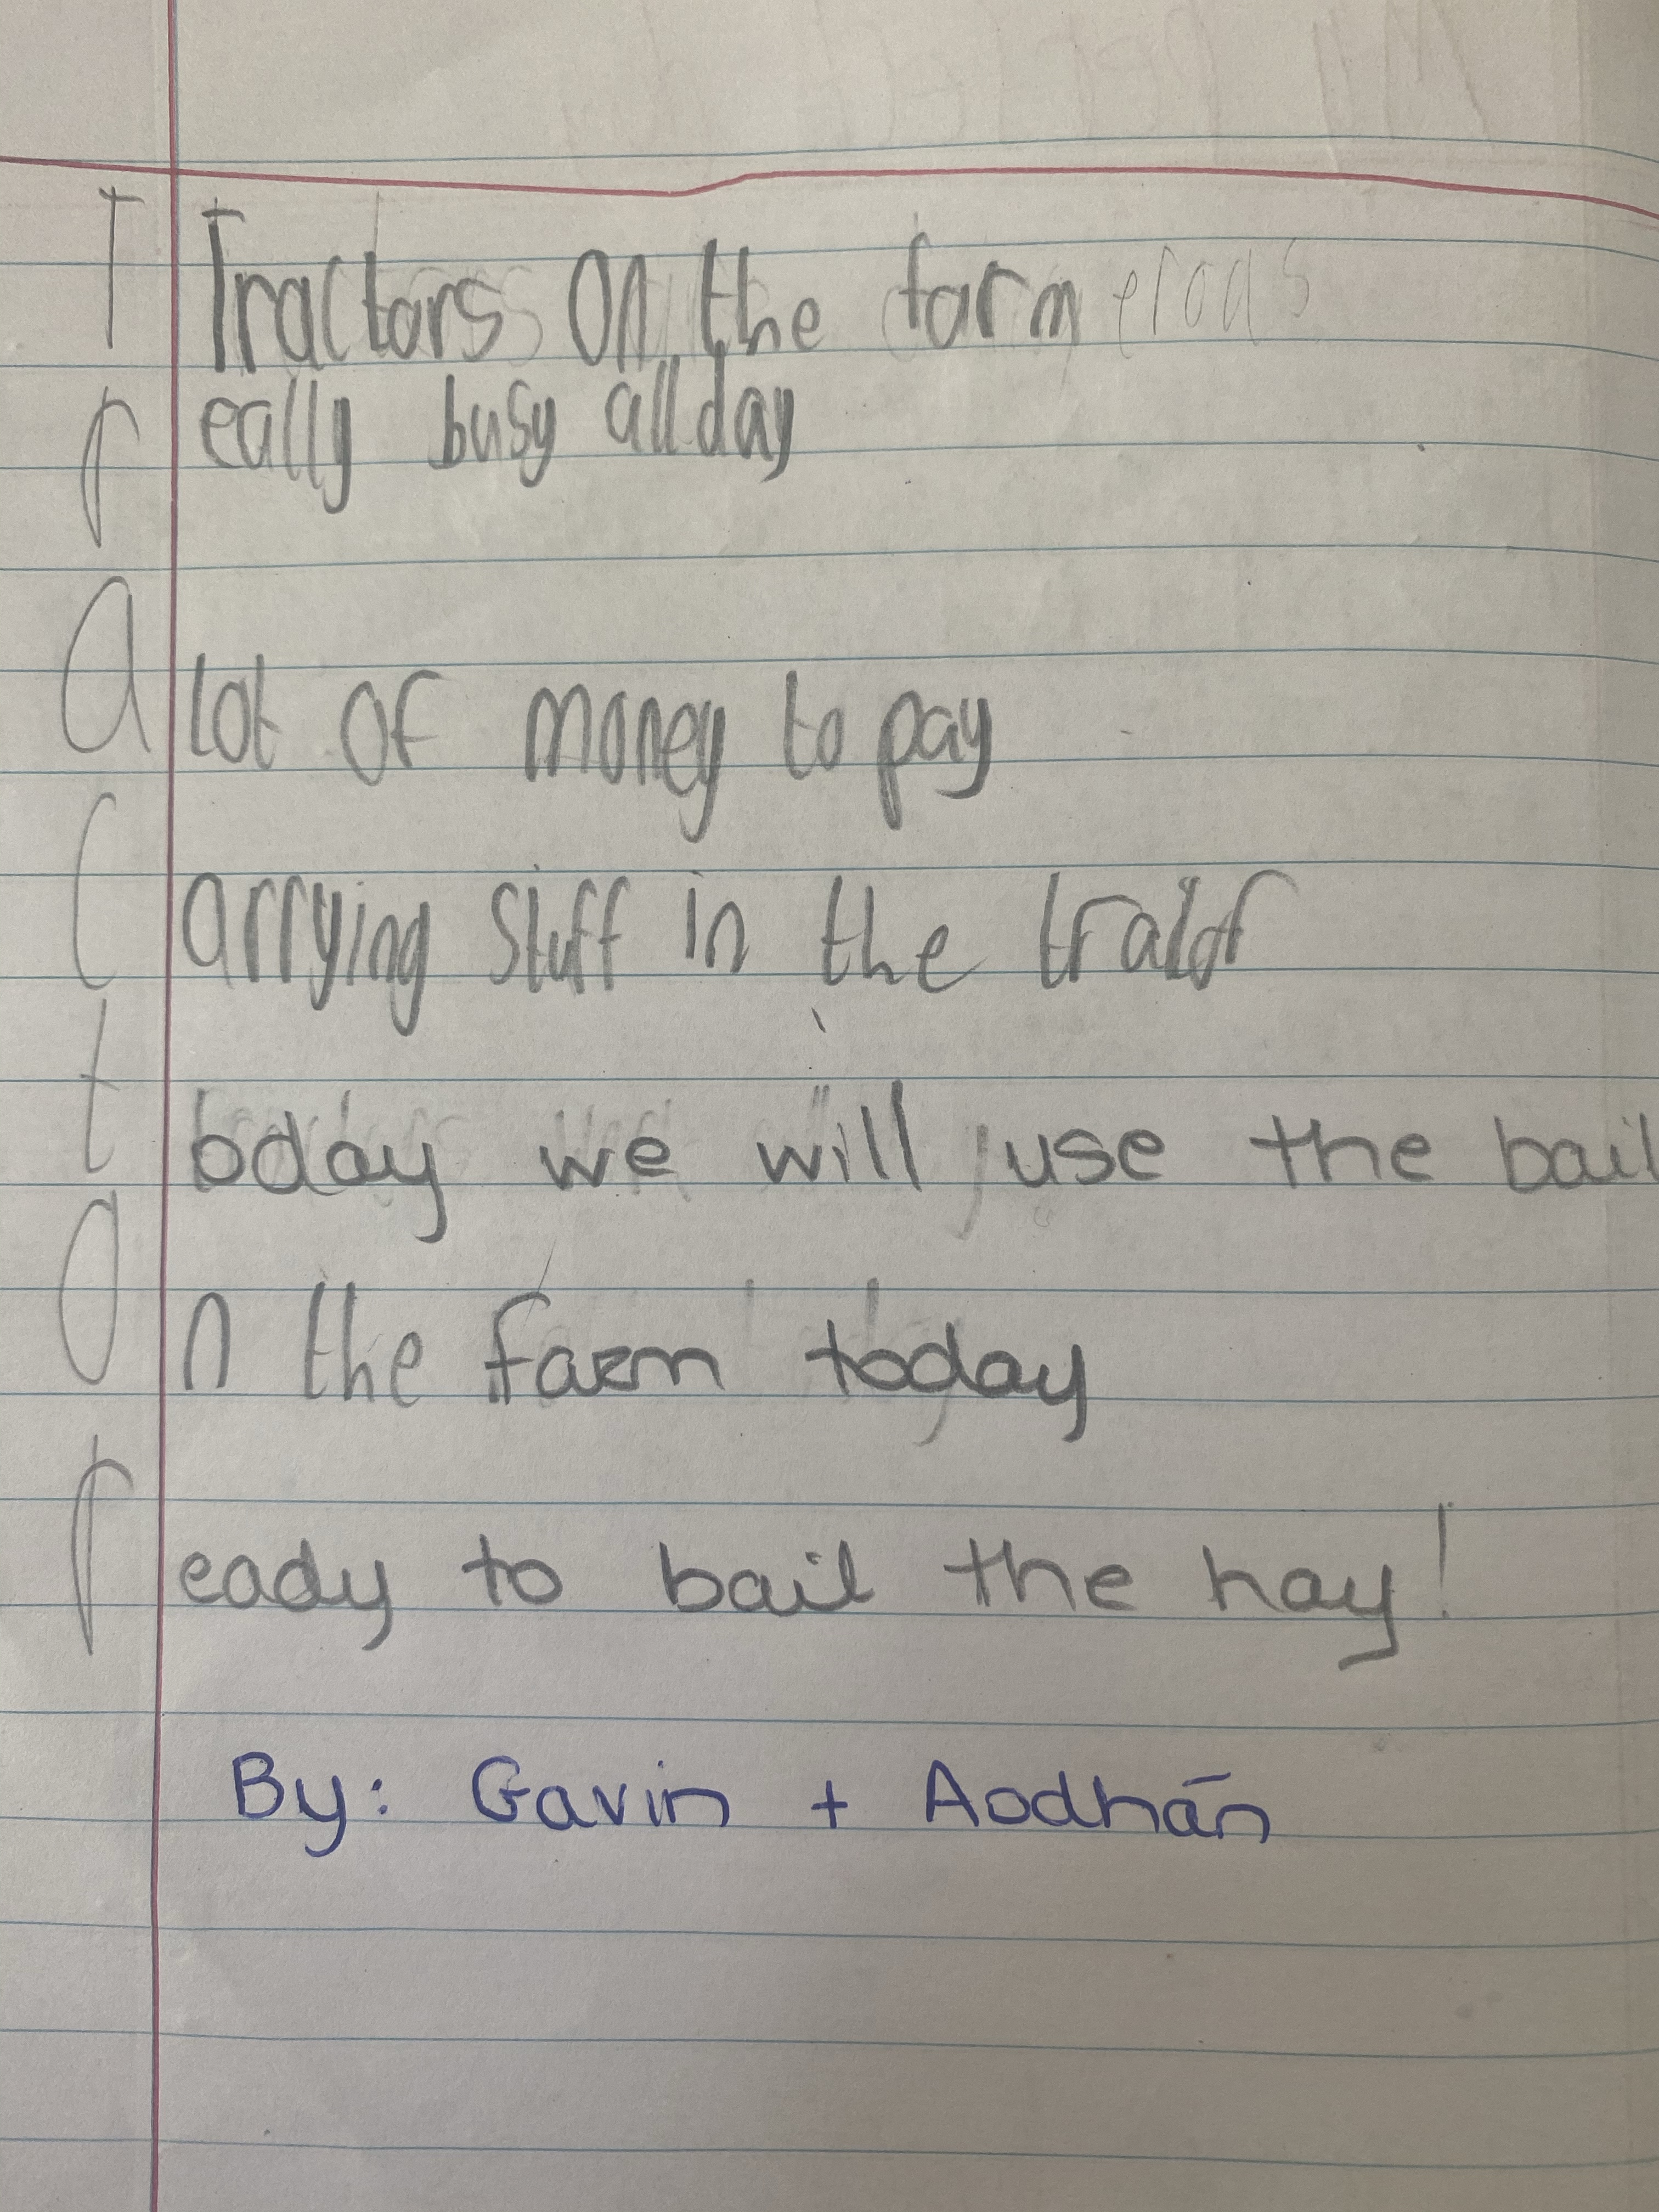 T Tractors on the farm
r eally busy all day
A lot of money to pay
C arrying stuff in the
t oday we will use the bail
O n the farm today
r eady to bail the hay!
By: Gavin + Aodhán